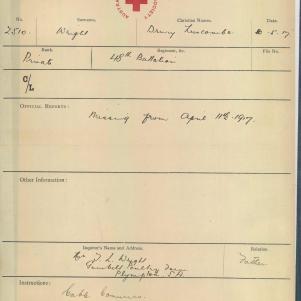 SOCIETY
No.
Surname.
Christian Names.
Date.
2510.
Wright
Drury Luscombe
5.17
Rank
Regiment, &c.
File No.
Private
48th Battalion
C/L
OFFICIAL REPORTS:
Missing from April 11th 1917.
Other Information:
Inquirer's Name and Address.
Relation
Mr. J. L. Wright
Father
Poultry Farm
Plympton S.A.
Instructions:
Cable